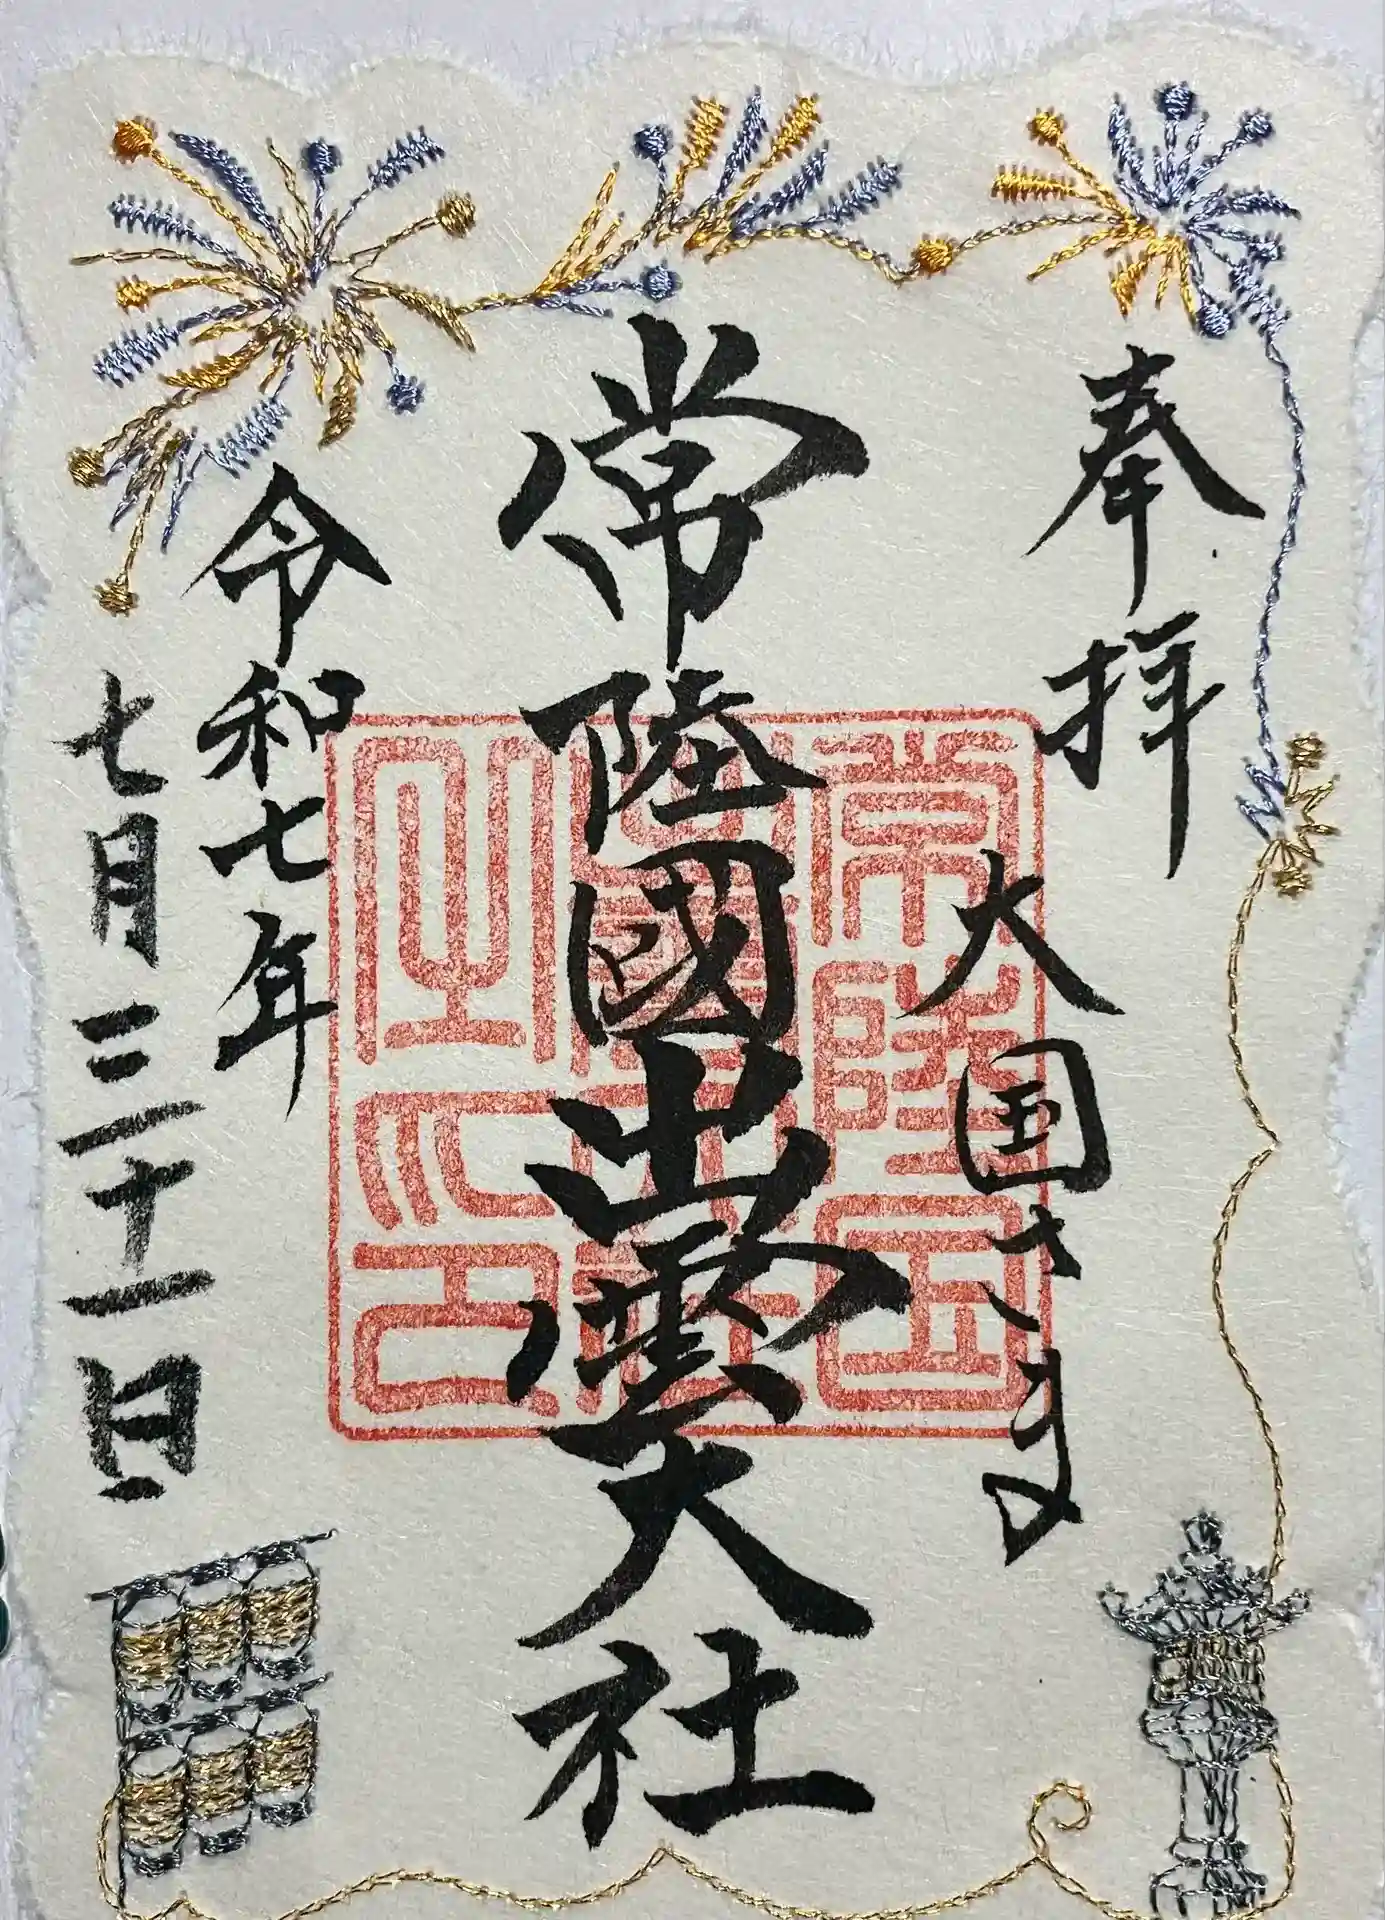 奉拝
大国さま
常陸國出雲大社
常陸国出雲大社之印
令和七年
七月三十一日